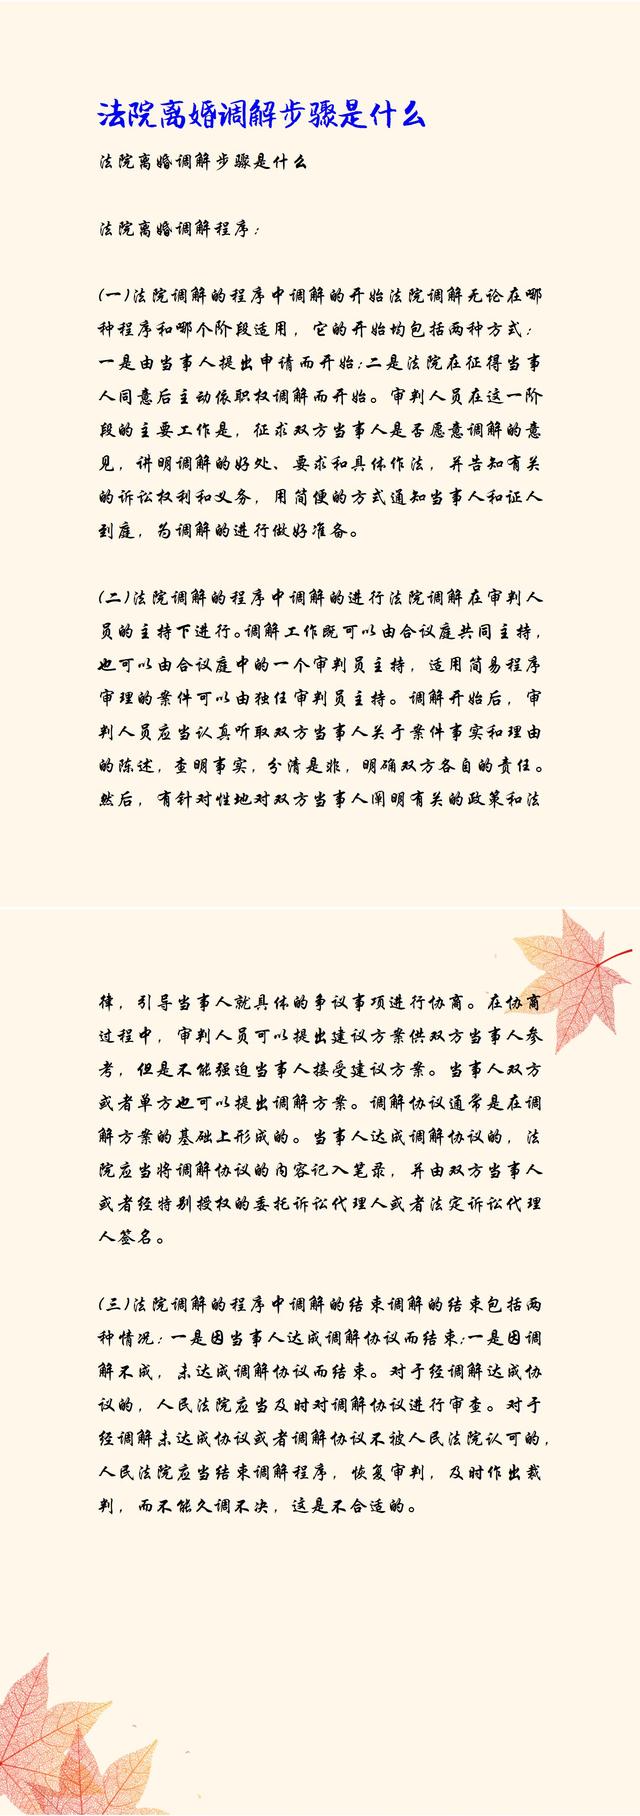 法院离婚调解步骤是什么
法院离婚调解步骤是什么
法院离婚调解程序：
(一)法院调解的程序中调解的开始法院调解无论在哪
种程序和哪个阶段适用，它的开始均包括两种方式：
一是由当事人提出申请而开始;二是法院在征得当事
人同意后主动依职权调解而开始。审判人员在这一阶
段的主要工作是，征求双方当事人是否愿意调解的意
见，讲明调解的好处、要求和具体作法，并告知有关
的诉讼权利和义务，用简便的方式通知当事人和证人
到庭，为调解的进行做好准备。
(二)法院调解的程序中调解的进行法院调解在审判人
员的主持下进行。调解工作既可以由合议庭共同主持，
也可以由合议庭中的一个审判员主持，适用简易程序
审理的案件可以由独任审判员主持。调解开始后，审
判人员应当认真听取双方当事人关于案件事实和理由
的陈述，查明事实，分清是非，明确双方各自的责任。
然后，有针对性地对双方当事人阐明有关的政策和法
律，引导当事人就具体的争议事项进行协商。在协商
过程中，审判人员可以提出建议方案供双方当事人参
考，但是不能强迫当事人接受建议方案。当事人双方
或者单方也可以提出调解方案。调解协议通常是在调
解方案的基础上形成的。当事人达成调解协议的，法
院应当将调解协议的内容记入笔录，并由双方当事人
或者经特别授权的委托诉讼代理人或者法定诉讼代理
人签名。
(三)法院调解的程序中调解的结束调解的结束包括两
种情况：一是因当事人达成调解协议而结束;一是因调
解不成，未达成调解协议而结束。对于经调解达成协
议的，人民法院应当及时对调解协议进行审查。对于
经调解未达成协议或者调解协议不被人民法院认可的，
人民法院应当结束调解程序，恢复审判，及时作出裁
判，而不能久调不决，这是不合适的。